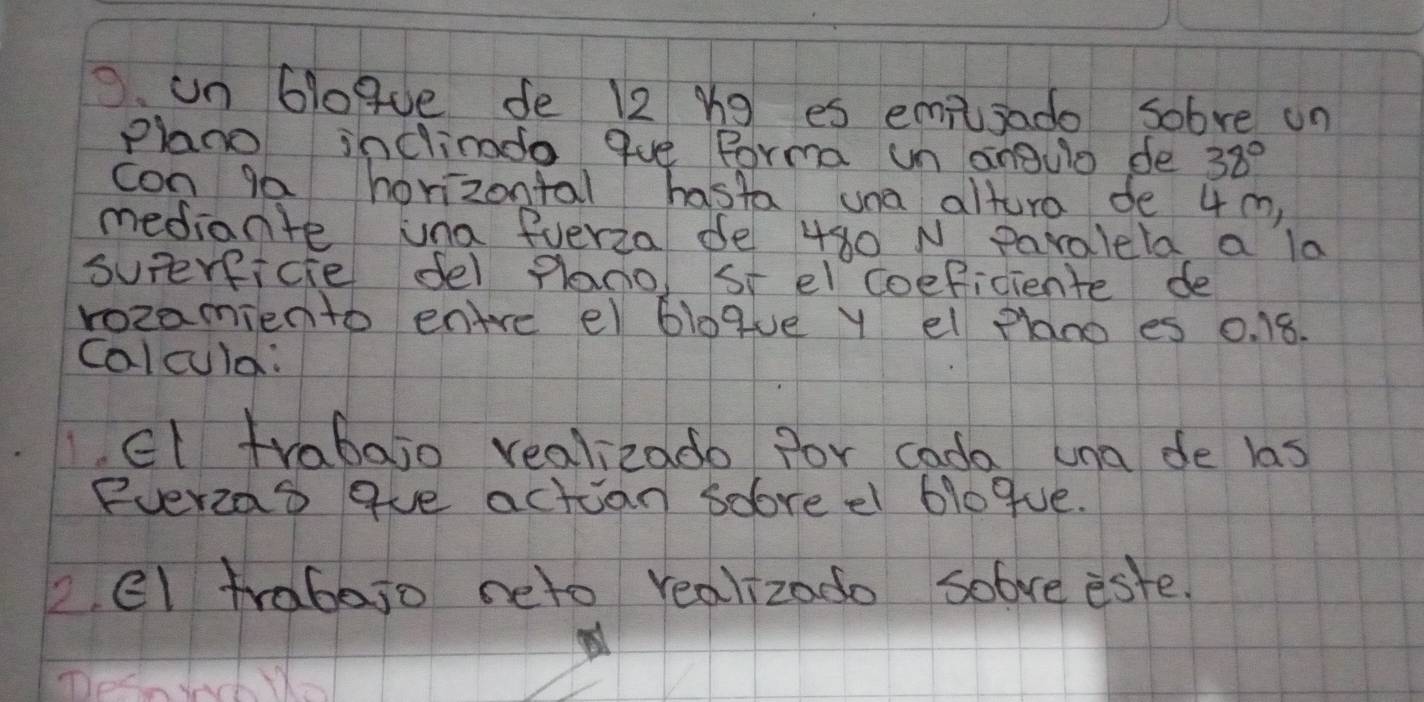 9. un bloque de 12 kg es empujado sobre un
plano inclinado que forma un angulo de 38°
con ga horizontal hasta una altura de 4 m,
mediante una fuerza de 480 N paralela a la
superficie del plano, si el coeficiente de
rozamiento entre el bloque y el plano es 0.18.
Calcula:
1. El trabajo realizado por cada una de las
Fuerzas que actúan sobre el bloque.
2. El trabajo neto realizado sobre éste.